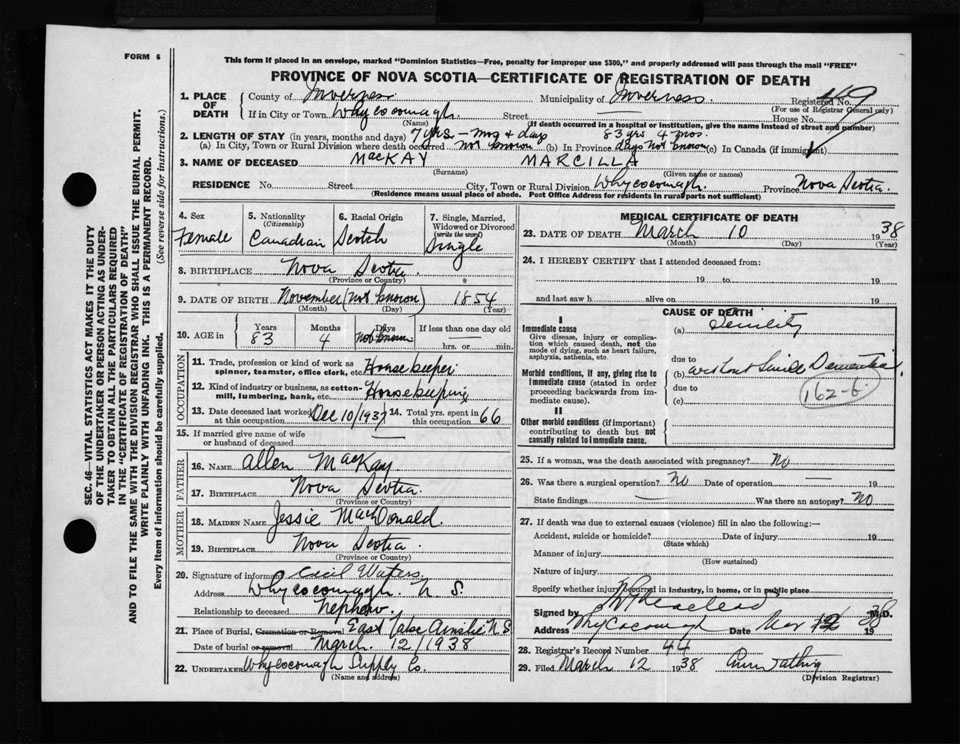 FORM 6
This form if placed in an envelope, marked "Dominion Statistics—Free, penalty for improper use $300," and properly addressed will pass through the mail "FREE"
PROVINCE OF NOVA SCOTIA—CERTIFICATE OF REGISTRATION OF DEATH
SEC. 46—VITAL STATISTICS ACT MAKES IT THE DUTY
OF THE UNDERTAKER OR PERSON ACTING AS UNDER-
TAKER TO OBTAIN ALL THE PARTICULARS REQUIRED
IN THE "CERTIFICATE OF REGISTRATION OF DEATH"
AND TO FILE THE SAME WITH THE DIVISION REGISTRAR WHO SHALL ISSUE THE BURIAL PERMIT.
WRITE PLAINLY WITH UNFADING INK. THIS IS A PERMANENT RECORD.
Every item of information should be carefully supplied. (See reverse side for instructions.)
1. PLACE OF DEATH
County of Inverness Municipality of Inverness. Registered No. 449
(For use of Registrar General only)
If in City or Town Whycocomagh. Street — House No.
(Name) (If death occurred in a hospital or institution, give the name instead of street and number)
2. LENGTH OF STAY (in years, months and days) 7 yrs - mos + days 83 yrs 4 mos.
(a) In City, Town or Rural Division where death occurred not known (b) In Province days not known (c) In Canada (if immigrant)
3. NAME OF DECEASED MACKAY MARCILLA
(Surname) (Given name or names)
RESIDENCE No. Street City, Town or Rural Division Whycocomagh. Province Nova Scotia.
(Residence means usual place of abode. Post Office Address for residents in rural parts not sufficient)
4. Sex
Female
5. Nationality
(Citizenship)
Canadian
6. Racial Origin
Scotch
7. Single, Married,
Widowed or Divorced
(write the word)
Single
8. BIRTHPLACE Nova Scotia
(Province or Country)
9. DATE OF BIRTH November (not known) 1854
(Month) (Day) (Year)
10. AGE in Years Months Days If less than one day old
83 4 not known hrs. or min.
OCCUPATION
11. Trade, profession or kind of work as
spinner, teamster, office clerk, etc. Housekeeper
12. Kind of industry or business, as cotton-
mill, lumbering, bank, etc. Housekeeping
13. Date deceased last worked
at this occupation Dec 10/1937 14. Total yrs. spent in 66
15. If married give name of wife
or husband of deceased —
FATHER
16. NAME Allen MacKay
17. BIRTHPLACE Nova Scotia.
(Province or Country)
MOTHER
18. MAIDEN NAME Jessie MacDonald.
19. BIRTHPLACE Nova Scotia.
(Province or Country)
20. Signature of informant Cecil Waters
Address Whycocomagh. N.S.
Relationship to deceased Nephew.
21. Place of Burial, Cremation or Removal East Lake Ainslie N.S
Date of burial or removal March. 12/1938
22. UNDERTAKER Whycocomagh Supply Co.
(Name and address)
MEDICAL CERTIFICATE OF DEATH
23. DATE OF DEATH March 10 1938
(Month) (Day) (Year)
24. I HEREBY CERTIFY that I attended deceased from:
19 to 19
and last saw h alive on 19
CAUSE OF DEATH
I
Immediate cause
Give disease, injury or complica-
tion which caused death, not the
mode of dying, such as heart failure,
asphyxia, asthenia, etc.
(a) Senility
due to
Morbid conditions, if any, giving rise to
immediate cause (stated in order
proceeding backwards from im-
mediate cause).
(b) without Senile Dementia.
due to
(c)
162-b
II
Other morbid conditions (if important)
contributing to death but not
causally related to immediate cause.
25. If a woman, was the death associated with pregnancy? No
26. Was there a surgical operation? No Date of operation — 19
State findings — Was there an autopsy? No
27. If death was due to external causes (violence) fill in also the following:—
Accident, suicide or homicide? Date of injury 19
(State which)
Manner of injury
(How sustained)
Nature of injury
Specify whether injury occurred in industry, in home, or in public place
Signed by M.D.
Address Whycocomagh Date Mar 12 1938
28. Registrar's Record Number 44
29. Filed March 12 1938
(Division Registrar)